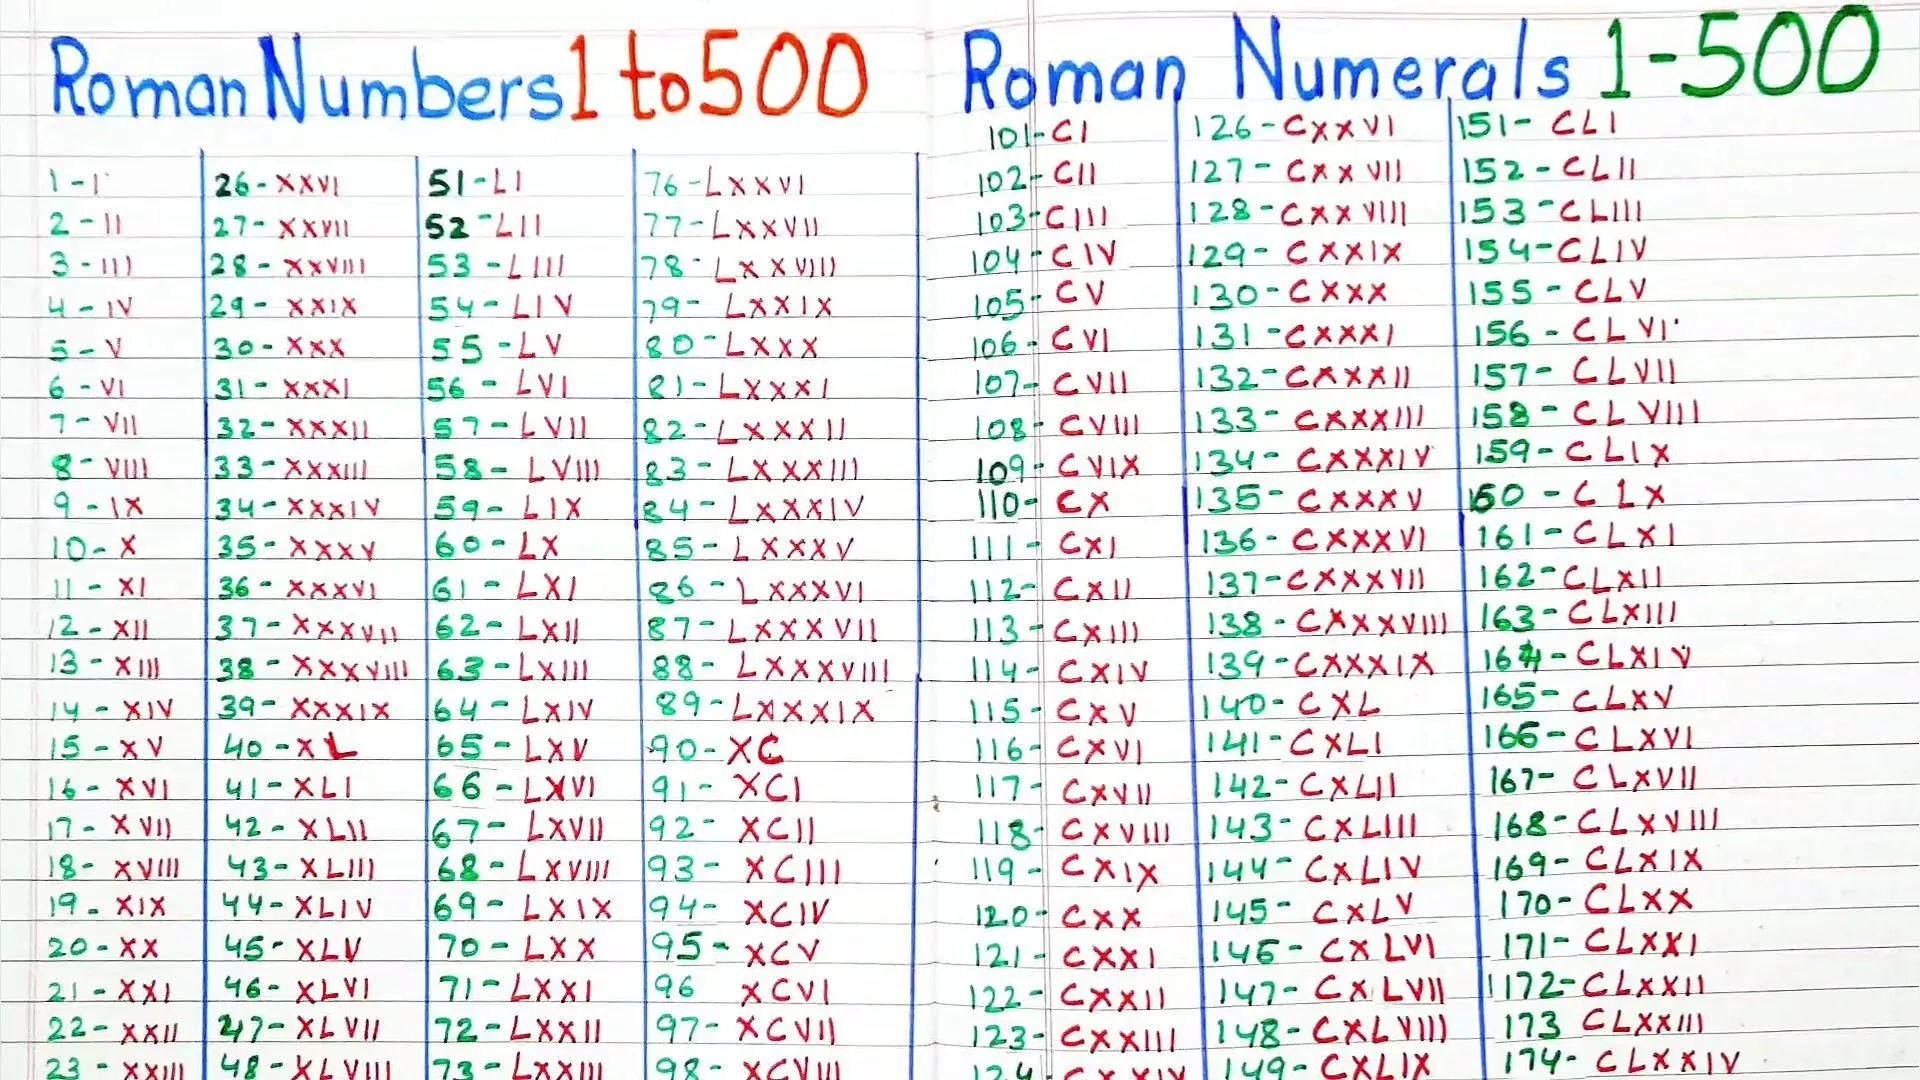 Roman Numbers 1 to 500
1 - I
2 - II
3 - III
4 - IV
5 - V
6 - VI
7 - VII
8 - VIII
9 - IX
10 - X
11 - XI
12 - XII
13 - XIII
14 - XIV
15 - XV
16 - XVI
17 - XVII
18 - XVIII
19 - XIX
20 - XX
21 - XXI
22 - XXII
23 - XXIII
26 - XXVI
27 - XXVII
28 - XXVIII
29 - XXIX
30 - XXX
31 - XXXI
32 - XXXII
33 - XXXIII
34 - XXXIV
35 - XXXV
36 - XXXVI
37 - XXXVII
38 - XXXVIII
39 - XXXIX
40 - XL
41 - XLI
42 - XLII
43 - XLIII
44 - XLIV
45 - XLV
46 - XLVI
47 - XLVII
48 - XLVIII
51 - LI
52 - LII
53 - LIII
54 - LIV
55 - LV
56 - LVI
57 - LVII
58 - LVIII
59 - LIX
60 - LX
61 - LXI
62 - LXII
63 - LXIII
64 - LXIV
65 - LXV
66 - LXVI
67 - LXVII
68 - LXVIII
69 - LXIX
70 - LXX
71 - LXXI
72 - LXXII
73 - LXXIII
76 - LXXVI
77 - LXXVII
78 - LXXVIII
79 - LXXIX
80 - LXXX
81 - LXXXI
82 - LXXXII
83 - LXXXIII
84 - LXXXIV
85 - LXXXV
86 - LXXXVI
87 - LXXXVII
88 - LXXXVIII
89 - LXXXIX
90 - XC
91 - XCI
92 - XCII
93 - XCIII
94 - XCIV
95 - XCV
96 XCVI
97 - XCVII
98 - XCVIII
Roman Numerals 1-500
101 - CI
102 - CII
103 - CIII
104 - CIV
105 - CV
106 - CVI
107 - CVII
108 - CVIII
109 - CVIX
110 - CX
111 - CXI
112 - CXII
113 - CXIII
114 - CXIV
115 - CXV
116 - CXVI
117 - CXVII
118 - CXVIII
119 - CXIX
120 - CXX
121 - CXXI
122 - CXXII
123 - CXXIII
124 - CXXIV
126 - CXXVI
127 - CXXVII
128 - CXXVIII
129 - CXXIX
130 - CXXX
131 - CXXXI
132 - CXXXII
133 - CXXXIII
134 - CXXXIV
135 - CXXXV
136 - CXXXVI
137 - CXXXVII
138 - CXXXVIII
139 - CXXXIX
140 - CXL
141 - CXLI
142 - CXLII
143 - CXLIII
144 - CXLIV
145 - CXLV
146 - CXLVI
147 - CXLVII
148 - CXLVIII
149 - CXLIX
151 - CLI
152 - CLII
153 - CLIII
154 - CLIV
155 - CLV
156 - CLVI
157 - CLVII
158 - CLVIII
159 - CLIX
160 - CLX
161 - CLXI
162 - CLXII
163 - CLXIII
164 - CLXIV
165 - CLXV
166 - CLXVI
167 - CLXVII
168 - CLXVIII
169 - CLXIX
170 - CLXX
171 - CLXXI
172 - CLXXII
173 CLXXIII
174 - CLXXIV